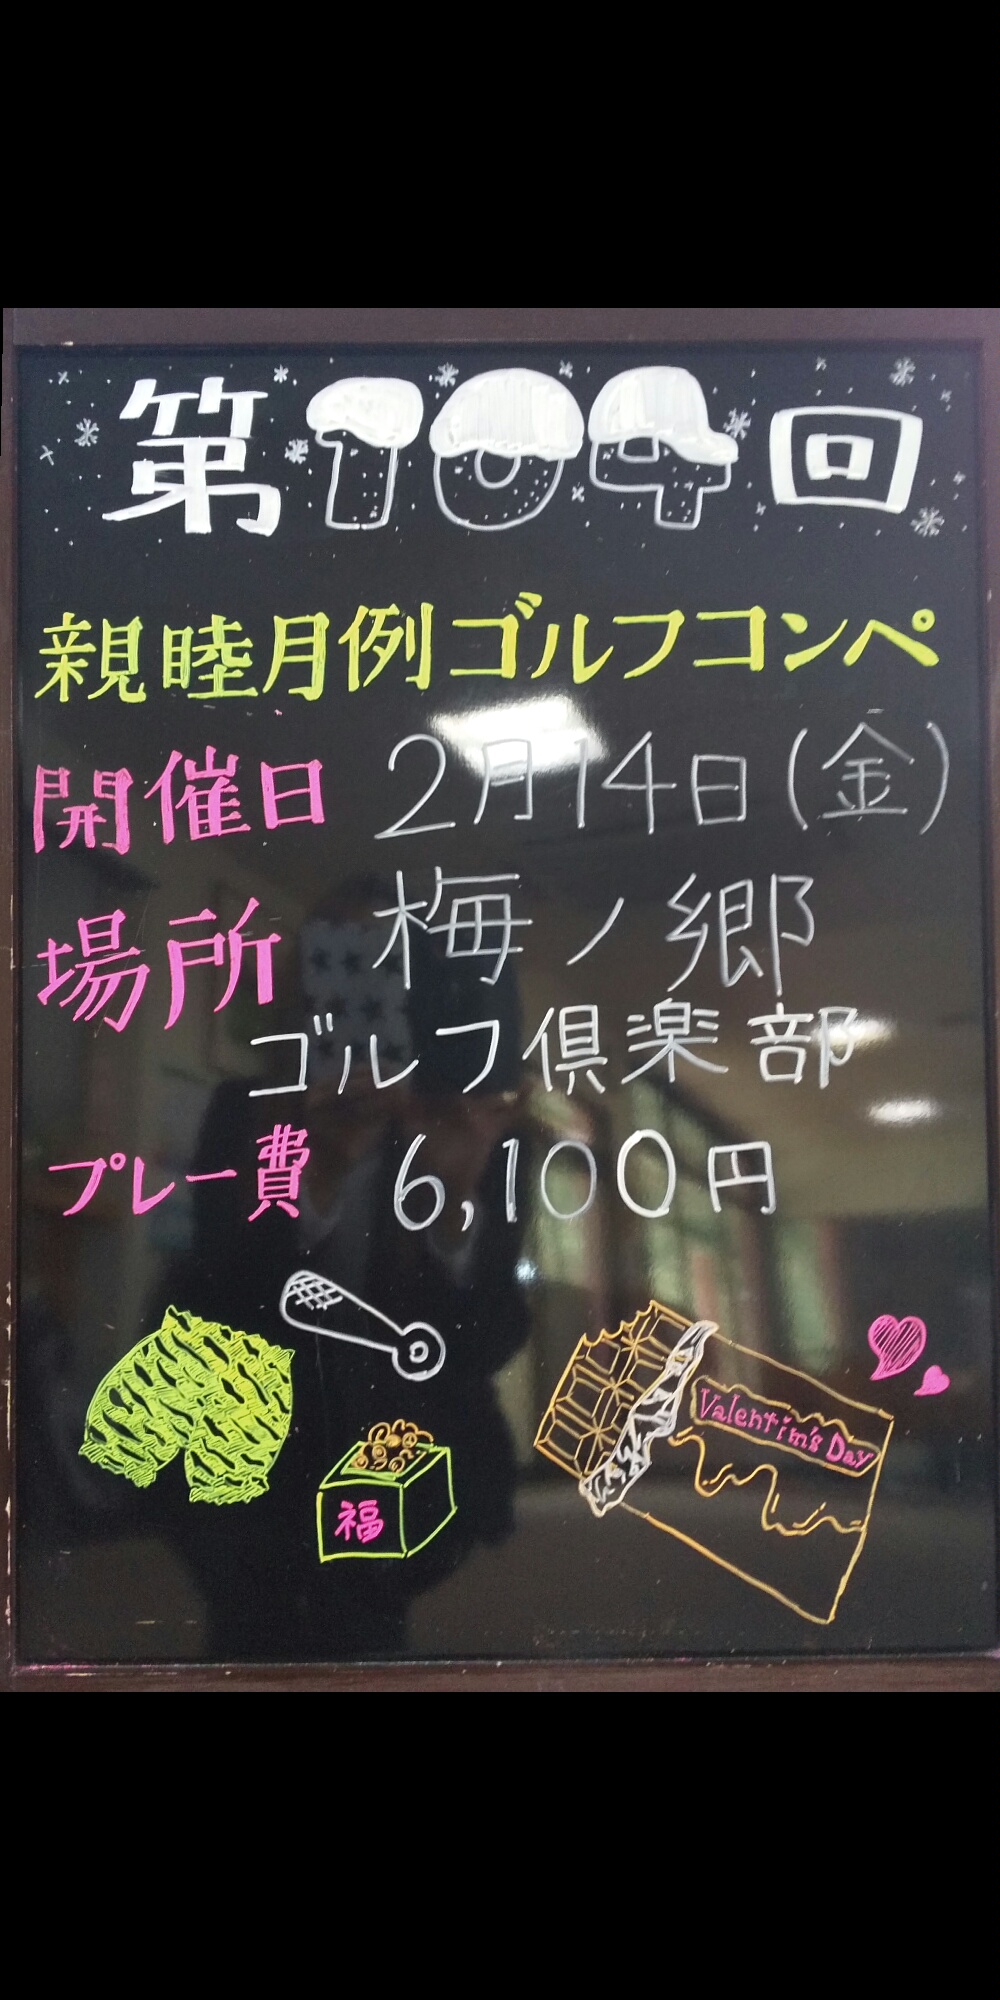 第104回
親睦月例ゴルフコンペ
開催日 2月14日(金)
場所 梅ノ郷
ゴルフ倶楽部
プレー費 6,100円
福
Valentim's Day